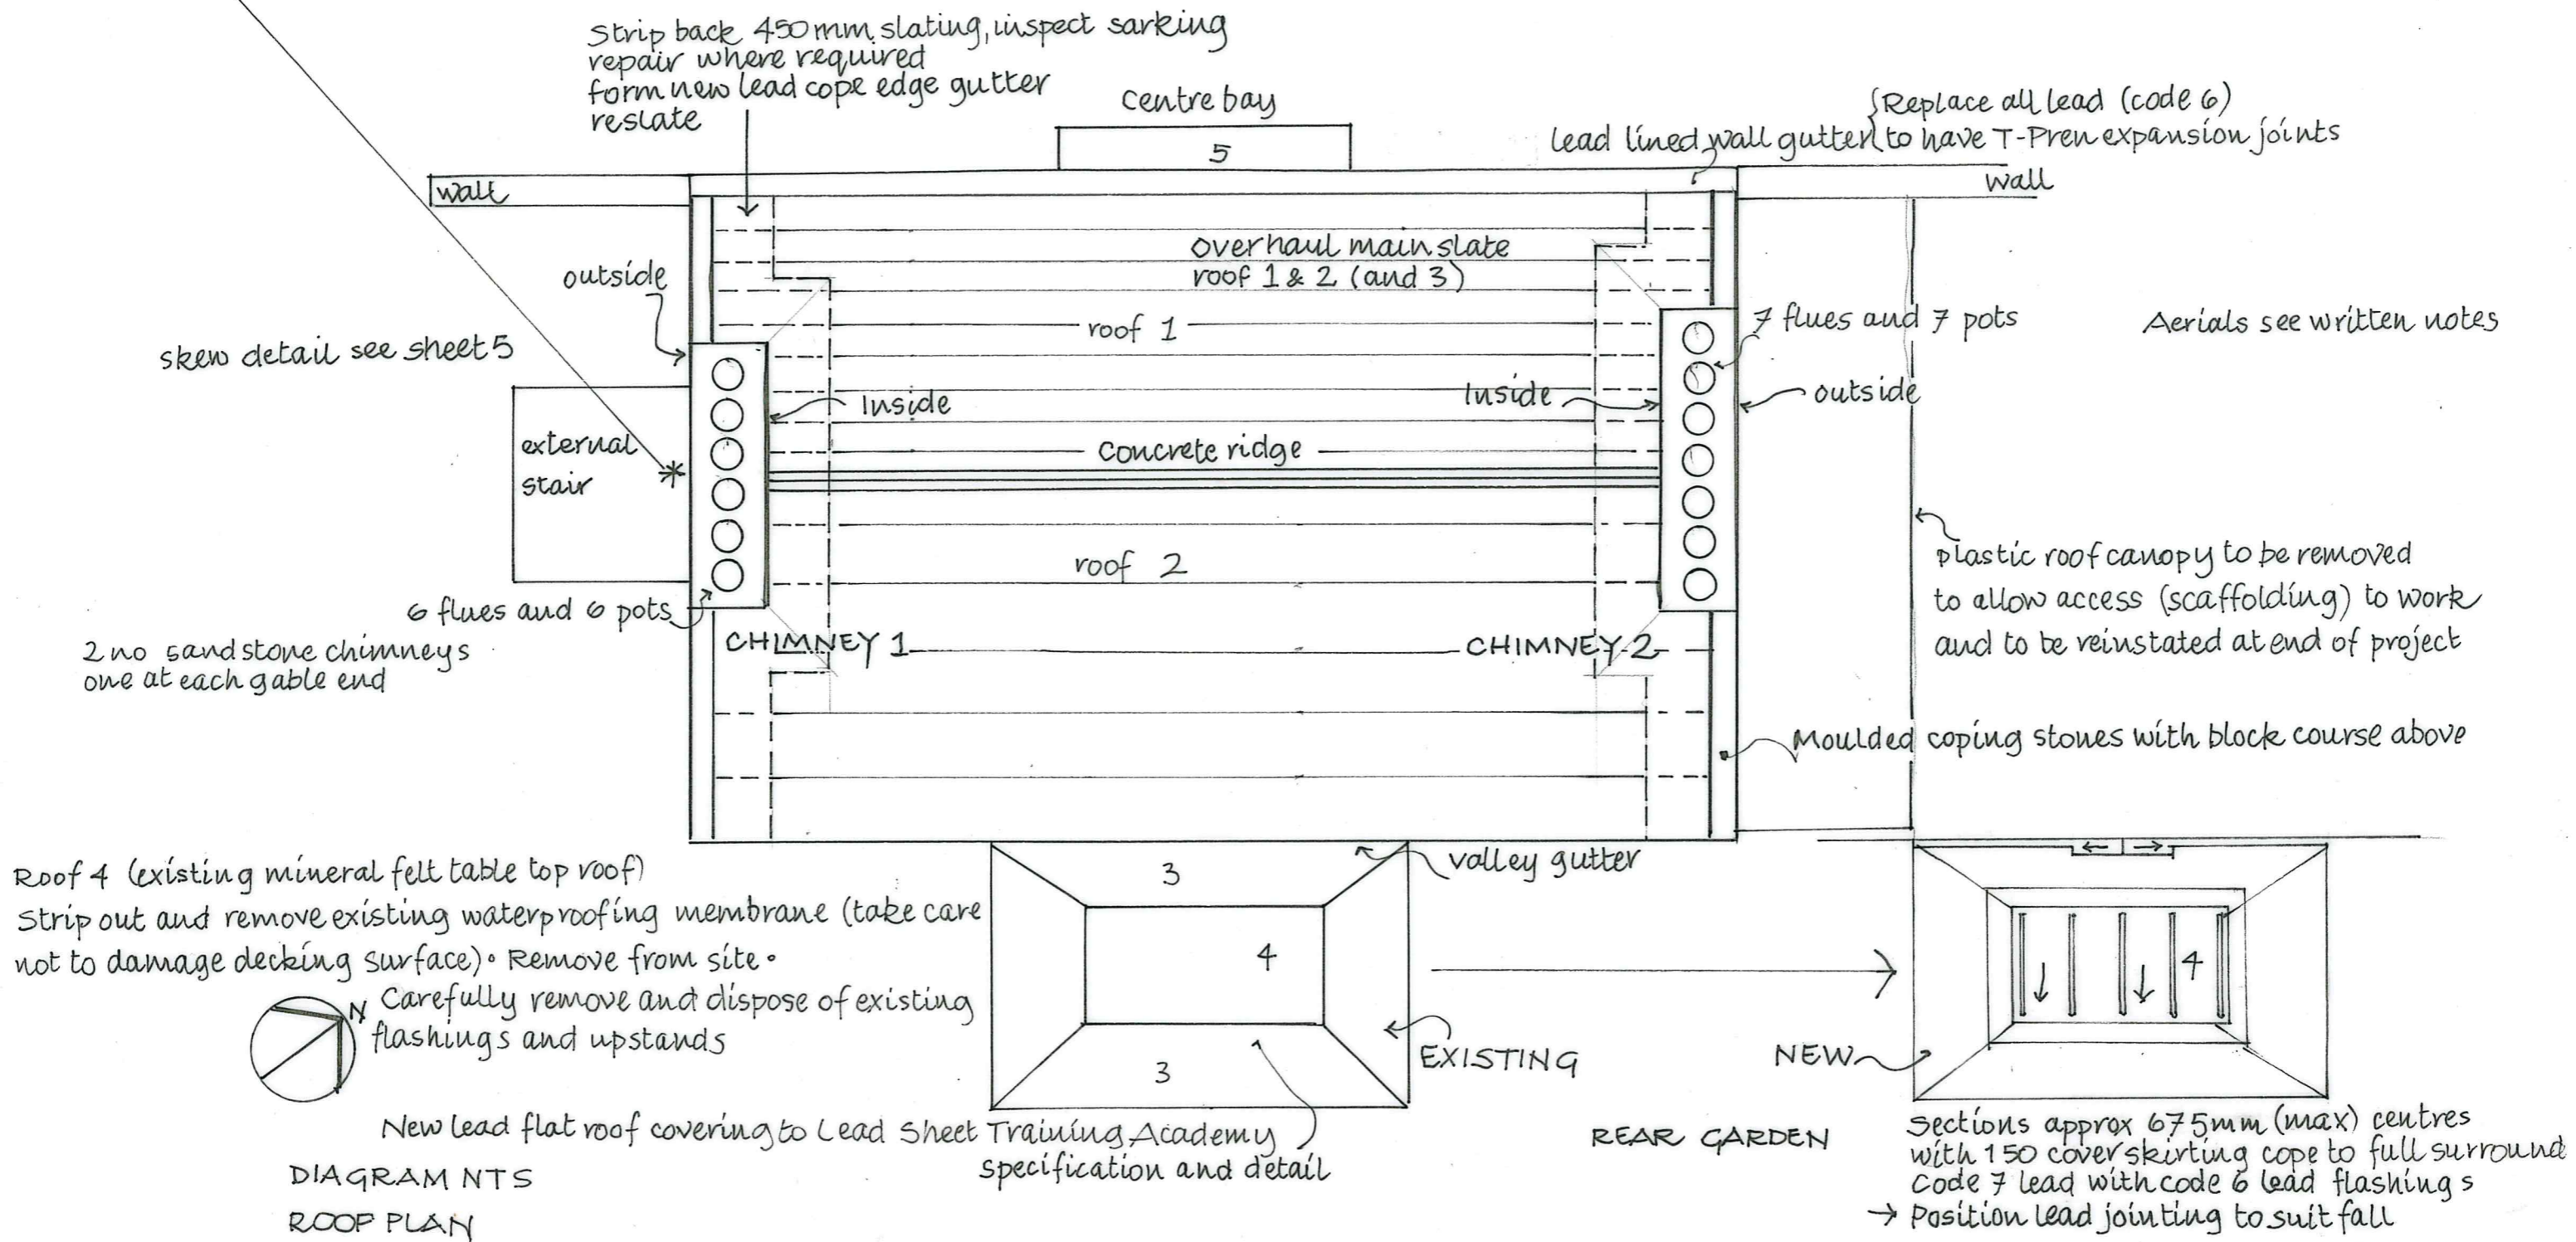 Strip back 450mm slating, inspect sarking
repair where required
form new lead cope edge gutter
reslate
Centre bay
5
Replace all lead (code 6)
lead lined wall gutter to have T-Pren expansion joints
wall
wall
overhaul main slate
roof 1 & 2 (and 3)
outside
roof 1
7 flues and 7 pots
Aerials see written notes
skew detail see sheet 5
Inside
Inside
outside
external
stair
concrete ridge
roof 2
plastic roof canopy to be removed
to allow access (scaffolding) to work
and to be reinstated at end of project
6 flues and 6 pots
CHIMNEY 1
CHIMNEY 2
2 no sandstone chimneys
one at each gable end
Moulded coping stones with block course above
valley gutter
Roof 4 (existing mineral felt table top roof)
Strip out and remove existing waterproofing membrane (take care
not to damage decking surface). Remove from site.
Carefully remove and dispose of existing
flashings and upstands
N
3
4
3
EXISTING
NEW
4
New lead flat roof covering to Lead Sheet Training Academy
specification and detail
REAR GARDEN
Sections approx 675mm (max) centres
with 150 cover skirting cope to full surround
Code 7 lead with code 6 lead flashings
→ Position lead jointing to suit fall
DIAGRAM NTS
ROOF PLAN